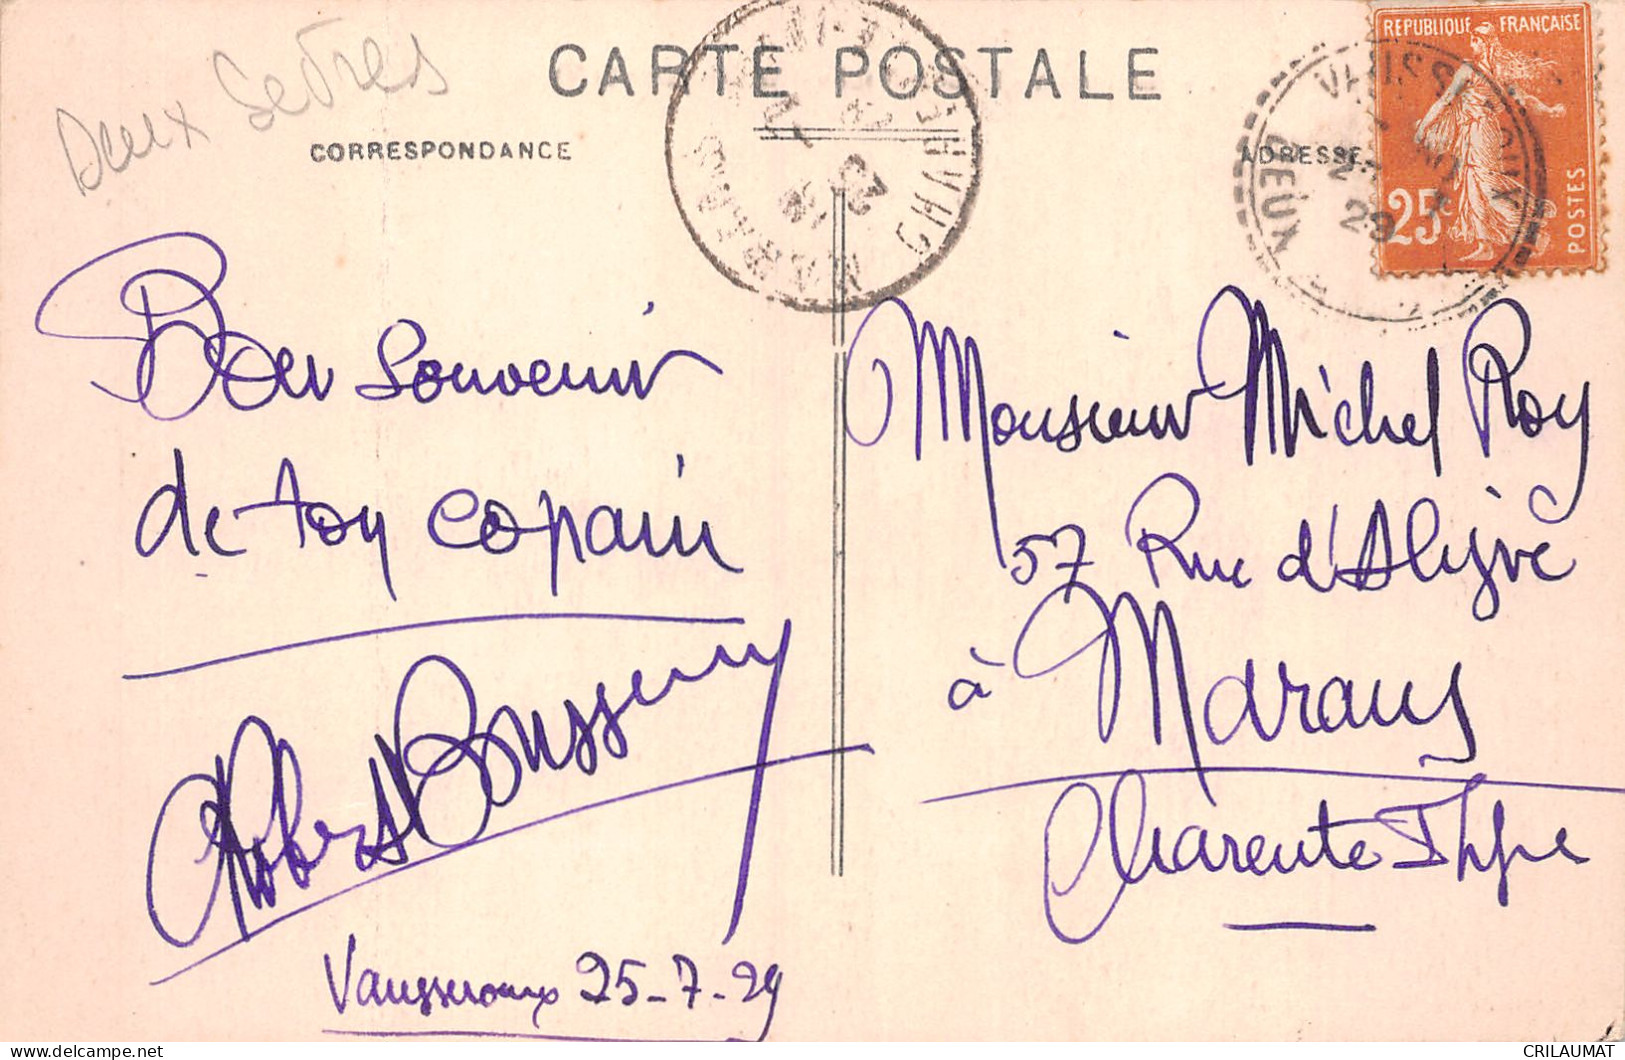 Deux Sevres
CARTE POSTALE
CORRESPONDANCE
ADRESSE
REPUBLIQUE FRANÇAISE
25c
POSTES
MARANS
CHAR
VAUSSEROUX
DEUX
29
Bon souvenir
de ton copain
Robert
Vausseroux 25-7-29
Monsieur Michel Roy
57 Rue d'Aligre
à Marans
Charente Infre
CRILAUMAT